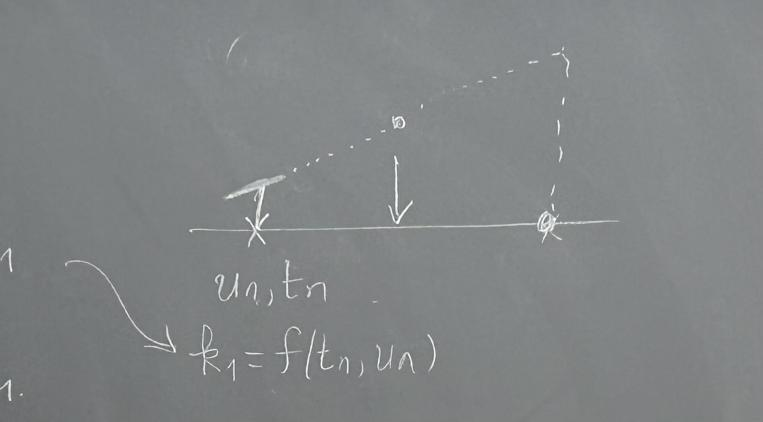 1
uₙ, tₙ
k₁ = f(tₙ, uₙ)
1.